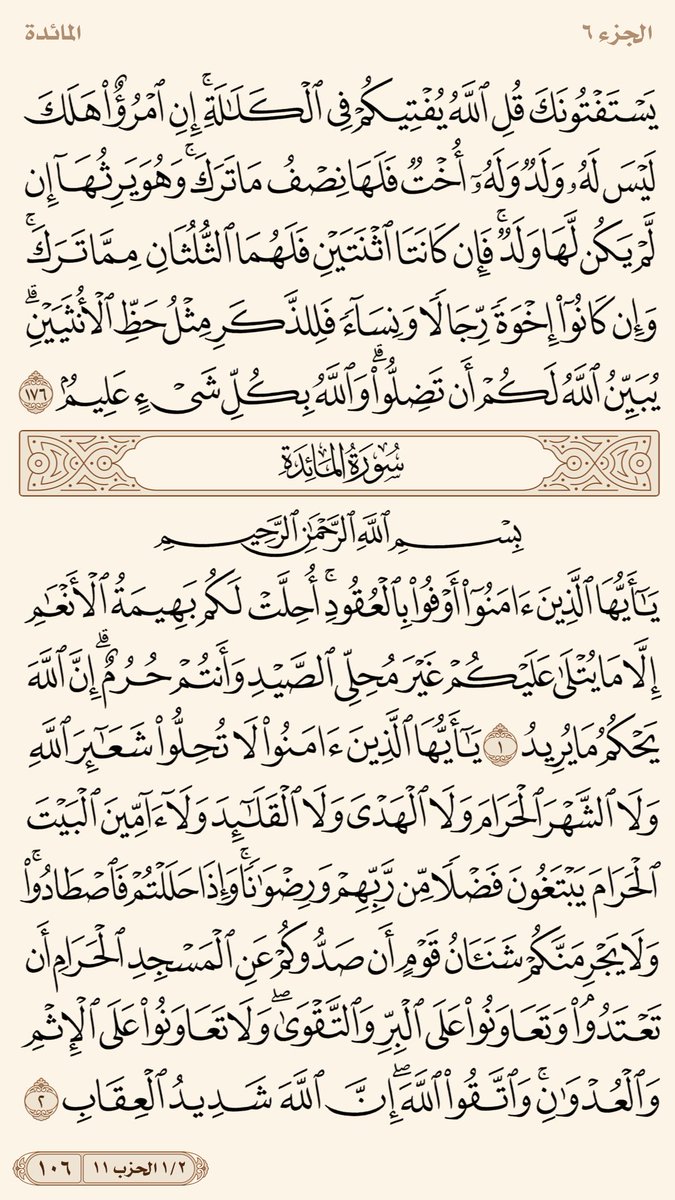 الجزء ٦
المائدة
يَسْتَفْتُونَكَ قُلِ ٱللَّهُ يُفْتِيكُمْ فِى ٱلْكَلَـٰلَةِ ۚ إِنِ ٱمْرُؤٌا۟ هَلَكَ
لَيْسَ لَهُۥ وَلَدٌ وَلَهُۥٓ أُخْتٌ فَلَهَا نِصْفُ مَا تَرَكَ ۚ وَهُوَ يَرِثُهَآ إِن
لَّمْ يَكُن لَّهَا وَلَدٌ ۚ فَإِن كَانَتَا ٱثْنَتَيْنِ فَلَهُمَا ٱلثُّلُثَانِ مِمَّا تَرَكَ ۚ
وَإِن كَانُوٓا۟ إِخْوَةً رِّجَالًا وَنِسَآءً فَلِلذَّكَرِ مِثْلُ حَظِّ ٱلْأُنثَيَيْنِ ۗ
يُبَيِّنُ ٱللَّهُ لَكُمْ أَن تَضِلُّوا۟ ۗ وَٱللَّهُ بِكُلِّ شَىْءٍ عَلِيمٌۢ ١٧٦
سُورَةُ المَائِدَةِ
بِسْمِ ٱللَّهِ ٱلرَّحْمَـٰنِ ٱلرَّحِيمِ
يَـٰٓأَيُّهَا ٱلَّذِينَ ءَامَنُوٓا۟ أَوْفُوا۟ بِٱلْعُقُودِ ۚ أُحِلَّتْ لَكُم بَهِيمَةُ ٱلْأَنْعَـٰمِ
إِلَّا مَا يُتْلَىٰ عَلَيْكُمْ غَيْرَ مُحِلِّى ٱلصَّيْدِ وَأَنتُمْ حُرُمٌ ۗ إِنَّ ٱللَّهَ
يَحْكُمُ مَا يُرِيدُ ١ يَـٰٓأَيُّهَا ٱلَّذِينَ ءَامَنُوا۟ لَا تُحِلُّوا۟ شَعَـٰٓئِرَ ٱللَّهِ
وَلَا ٱلشَّهْرَ ٱلْحَرَامَ وَلَا ٱلْهَدْىَ وَلَا ٱلْقَلَـٰٓئِدَ وَلَآ ءَآمِّينَ ٱلْبَيْتَ
ٱلْحَرَامَ يَبْتَغُونَ فَضْلًا مِّن رَّبِّهِمْ وَرِضْوَٰنًا ۚ وَإِذَا حَلَلْتُمْ فَٱصْطَادُوا۟ ۚ
وَلَا يَجْرِمَنَّكُمْ شَنَـَٔانُ قَوْمٍ أَن صَدُّوكُمْ عَنِ ٱلْمَسْجِدِ ٱلْحَرَامِ أَن
تَعْتَدُوا۟ ۘ وَتَعَاوَنُوا۟ عَلَى ٱلْبِرِّ وَٱلتَّقْوَىٰ ۖ وَلَا تَعَاوَنُوا۟ عَلَى ٱلْإِثْمِ
وَٱلْعُدْوَٰنِ ۚ وَٱتَّقُوا۟ ٱللَّهَ ۖ إِنَّ ٱللَّهَ شَدِيدُ ٱلْعِقَابِ ٢
١/٢ الحزب ١١
١٠٦